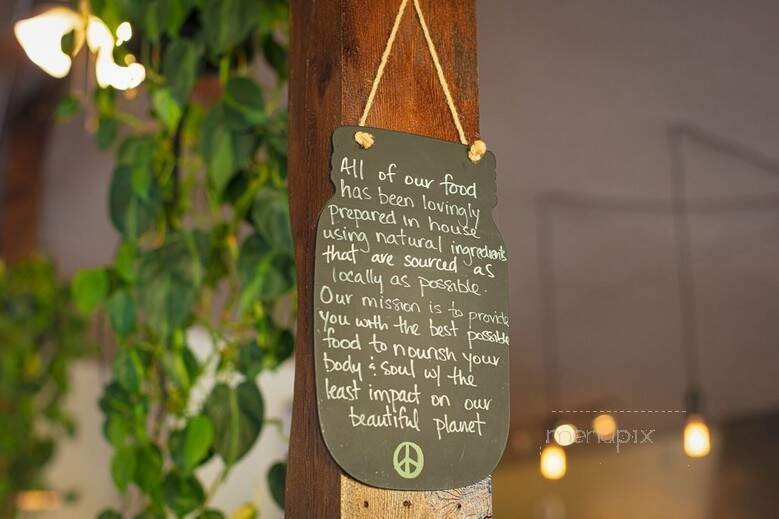 All of our food
has been lovingly
prepared in house
using natural ingredients
that are sourced as
locally as possible.
Our mission is to provide
you with the best possible
food to nourish your
body & soul w/ the
least impact on our
beautiful planet
menupix